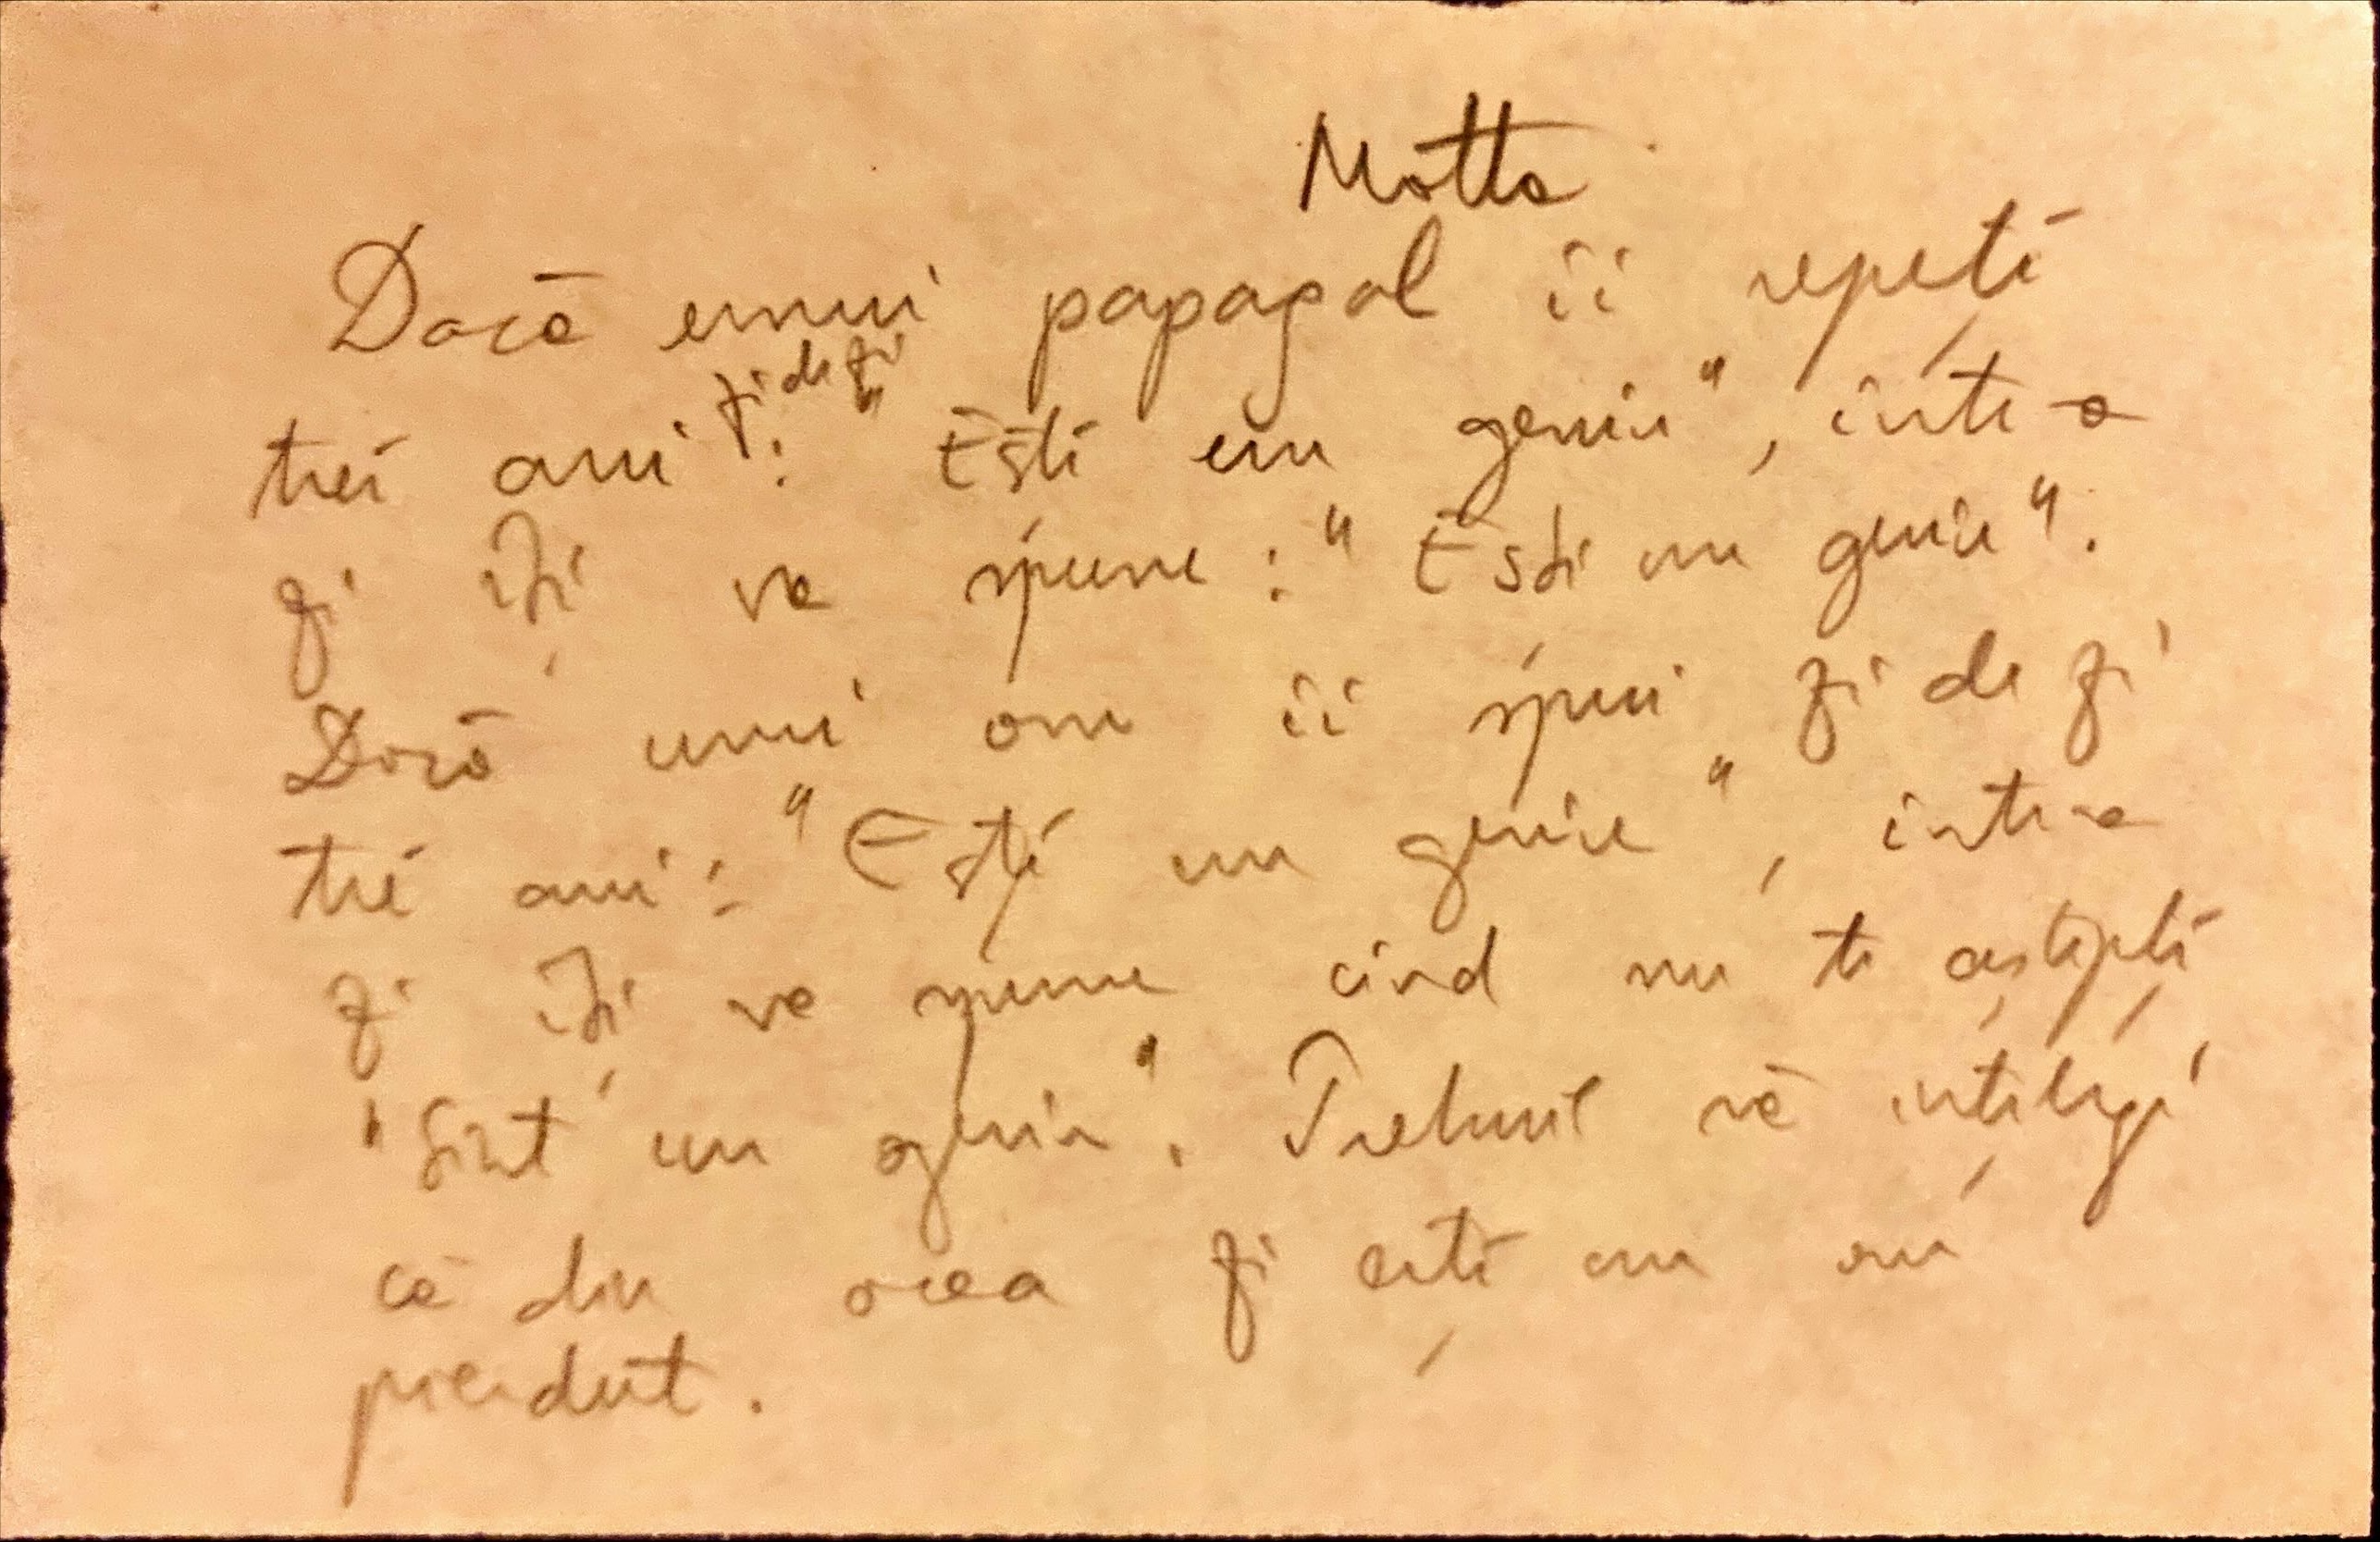 Motto
Dacă unui papagal îi repeți
trei ani zi de zi : "Ești un geniu", într-o
zi îți va spune : "Ești un geniu".
Dacă unui om îi spui zi de zi
trei ani : "Ești un geniu", într-o
zi îți va spune cînd nu te aștepți
"Sînt un geniu". Trebuie să înțelegi
că din acea zi ești un om
pierdut.